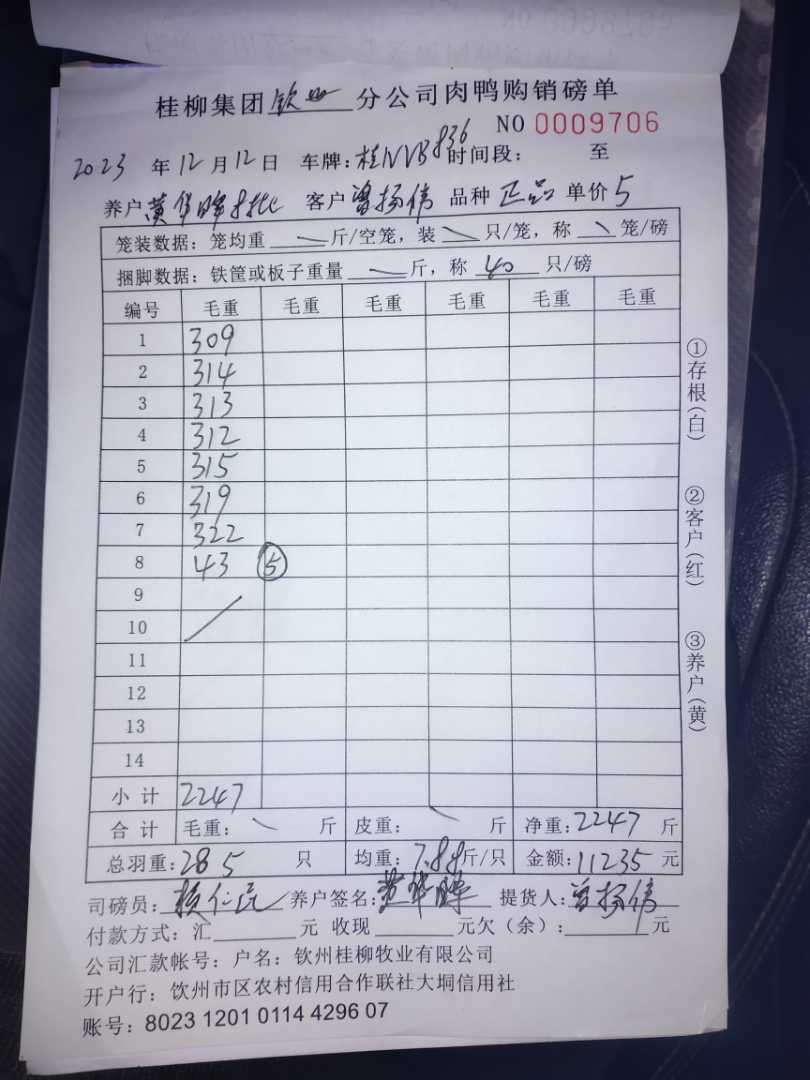 桂柳集团钦州分公司肉鸭购销磅单
NO 0009706
2023年12月12日 车牌:桂NVB836 时间段: 至
养户黄华晖 客户曾扬伟 品种正品 单价5
笼装数据:笼均重 斤/空笼,装 只/笼,称 笼/磅
捆脚数据:铁筐或板子重量 斤,称40只/磅
编号 毛重 毛重 毛重 毛重 毛重 毛重
1 309
2 314
3 313
4 312
5 315
6 319
7 322
8 43 ⑤
9
10
11
12
13
14
小计 2247
合计 毛重: 斤 皮重: 斤 净重:2247斤
总羽重:285只 均重:7.88斤/只 金额:11235元
司磅员: 养户签名:黄华晖 提货人:曾扬伟
付款方式:汇 元 收现 元欠(余): 元
公司汇款帐号:户名:钦州桂柳牧业有限公司
开户行:钦州市区农村信用合作联社大垌信用社
账号:8023 1201 0114 4296 07
①存根(白)
②客户(红)
③养户(黄)